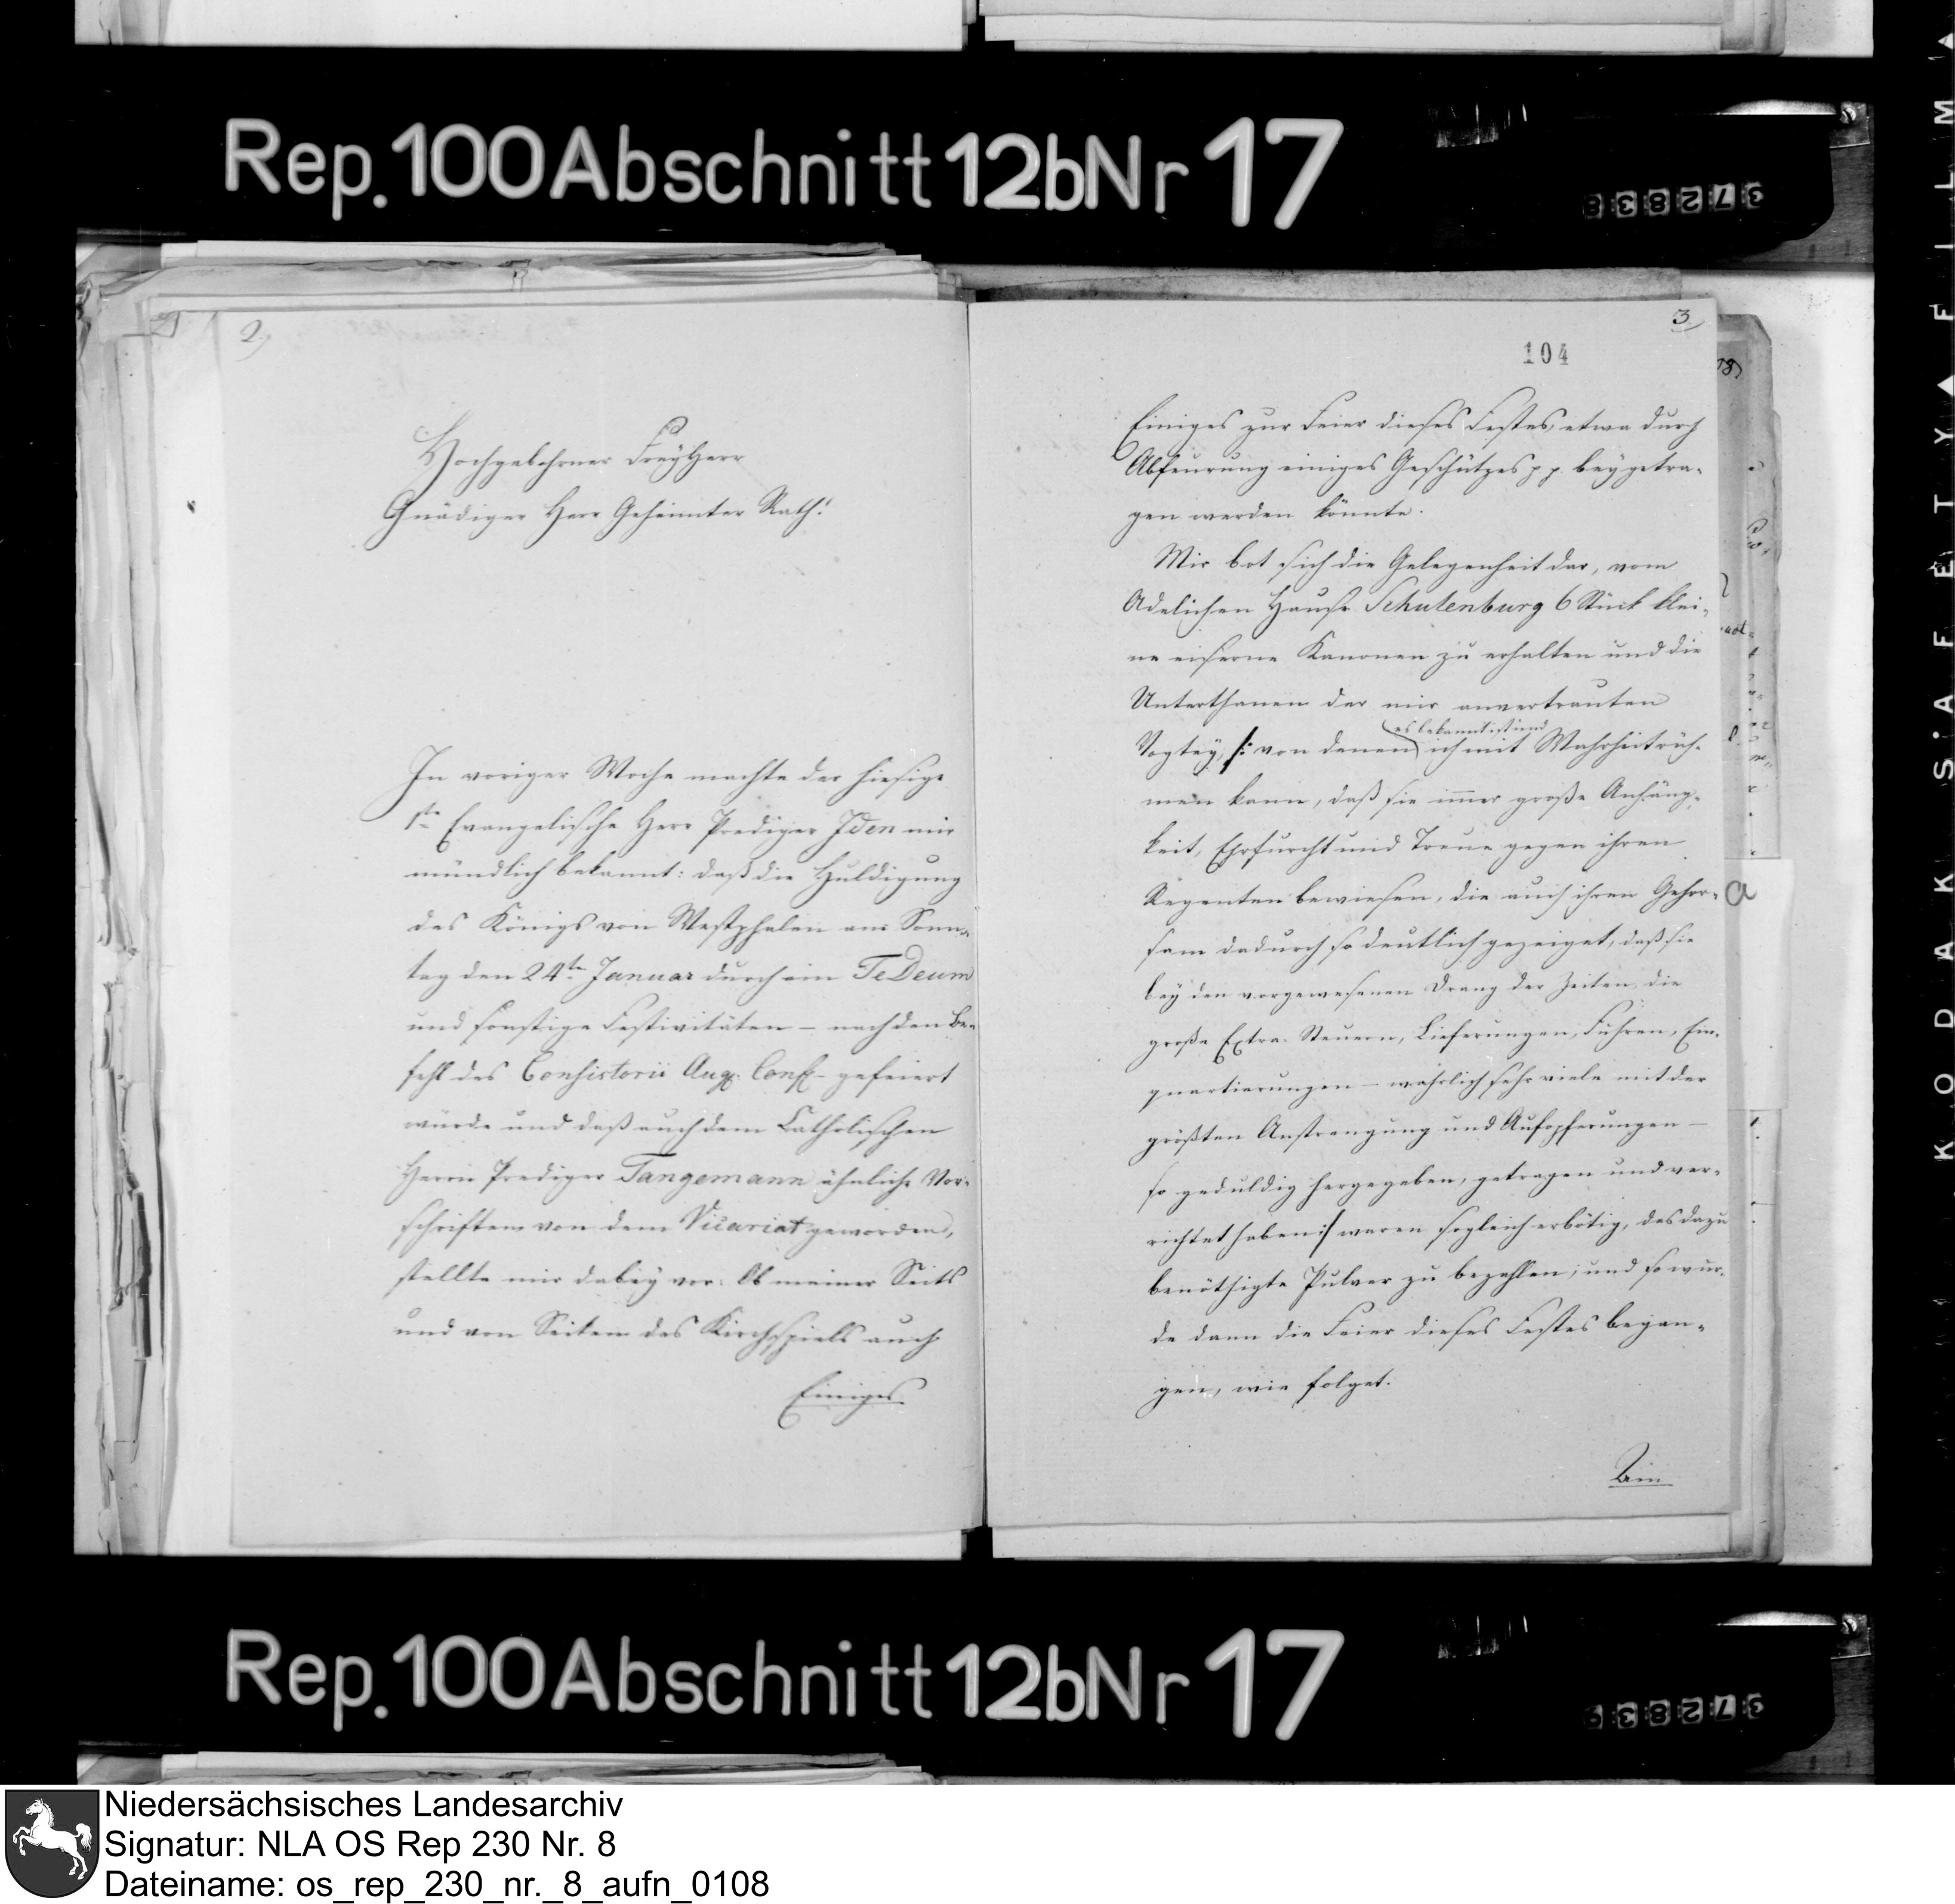 Rep. 100 Abschnitt 12b Nr 17
372838
2,
Hochgebohrner FreyHerr
Gnädiger Herr Geheimter Rath!
In voriger Woche machte der hiesige
1ste Evangelische Herr Prediger Iden mir
mündlich bekannt: daß die Huldigung
des Königs von Westphalen am Sonn-
tag den 24ten Januar durch ein Te Deum
und sonstige Festivitäten – nach den Be-
fehl des Consistorii Aug. Conf. – gefeiert
würde und daß auch dem Catholischen
Herrn Prediger Tangemann ähnliche Vor-
schriften von dem Vicariat geworden,
stellte mir dabey vor: Ob meiner Seits
und von Seiten des Kirchspiels auch
Einiges
3,
104
Einiges zur Feier dieses Festes, etwa durch
Abfeurung einiges Geschützes pp. beygetra-
gen werden könnte.
Mir bot sich die Gelegenheit dar, vom
Adelichen Hause Schulenburg 6 Stück klei-
ne eiserne Kanonen zu erhalten und die
Unterthanen der mir anvertrauten
es bekannt ist und
Vogtey /: von denen ich mit Wahrheit rüh-
men kann, daß sie immer große Anhäng-
keit, Ehrfurcht und Treue gegen ihren
Regenten bewiesen, die auch ihren Gehor-
sam dadurch so deutlich gezeiget, daß sie
bey den vorgewesenen Drang der Zeiten, die
große Extra-Steuern, Lieferungen, Fuhren, Ein-
quartierungen – wahrlich sehr viele mit der
größten Anstrengung und Aufopferungen –
so geduldig hergegeben, getragen und ver-
richtet haben :/ waren sogleich erbötig, das dazu
benöthigte Pulver zu bezahlen; und so wur-
de dann die Feier dieses Festes began-
gen, wie folget.
Rep. 100 Abschnitt 12b Nr 17
372839
KODAK SAFETY FILM
Niedersächsisches Landesarchiv
Signatur: NLA OS Rep 230 Nr. 8
Dateiname: os_rep_230_nr._8_aufn_0108